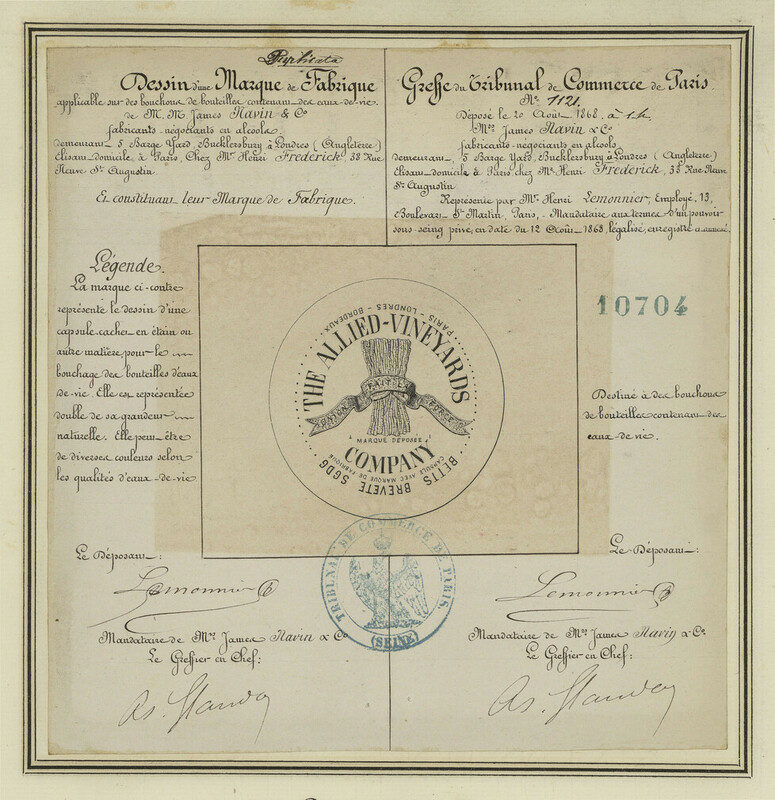 Duplicata
Dessin d'une Marque de Fabrique
applicable sur des bouchons de bouteilles contenant des eaux-de-vie
de M. M. James Navin & Co
fabricants-négociants en alcools
demeurant 5 Barge Yard, Bucklersbury à Londres (Angleterre)
élisant domicile à Paris, Chez Mr Henri Frederick, 38 Rue
Neuve St Augustin
Et constituant leur Marque de Fabrique.
Greffe du Tribunal de Commerce de Paris
No 1121.
Déposé le 20 Août 1868, à 1h
Mrs James Navin & Co
fabricants-négociants en alcools
demeurant, 5 Barge Yard, Bucklersbury à Londres (Angleterre)
élisant domicile à Paris chez Mr Henri Frederick, 38 Rue Neuve
St Augustin
Représenté par Mr Henri Lemonnier, Employé, 13,
Boulevart St Martin, Paris, - Mandataire aux termes d'un pouvoir
sous-seing privé, en date du 12 Août 1868, légalisé, enregistré et annexé.
Légende.
La marque ci-contre
représente le dessin d'une
capsule-cachet en étain ou
autre matière, pour le
bouchage des bouteilles d'eaux
-de-vie. Elle est représentée
double de sa grandeur
naturelle. Elle peut être
de diverses couleurs selon
les qualités d'eaux-de-vie.
PARIS - LONDRES - BORDEAUX
THE ALLIED-VINEYARDS
L'UNION FAIT LA FORCE
MARQUE DÉPOSÉE
COMPANY
CAPSULE AVEC MARQUE DE FABRIQUE
BETTS BREVETÉ SGDG
10704
Destiné à des bouchons
de bouteilles contenant des
eaux-de-vie.
TRIBUNAL DE COMMERCE DE PARIS.
(SEINE)
Le Déposant:
Lemonnier
Mandataire de Mrs James Navin & Co
Le Greffier en Chef:
Le Déposant:
Lemonnier
Mandataire de Mrs James Navin & Co.
Le Greffier en Chef: